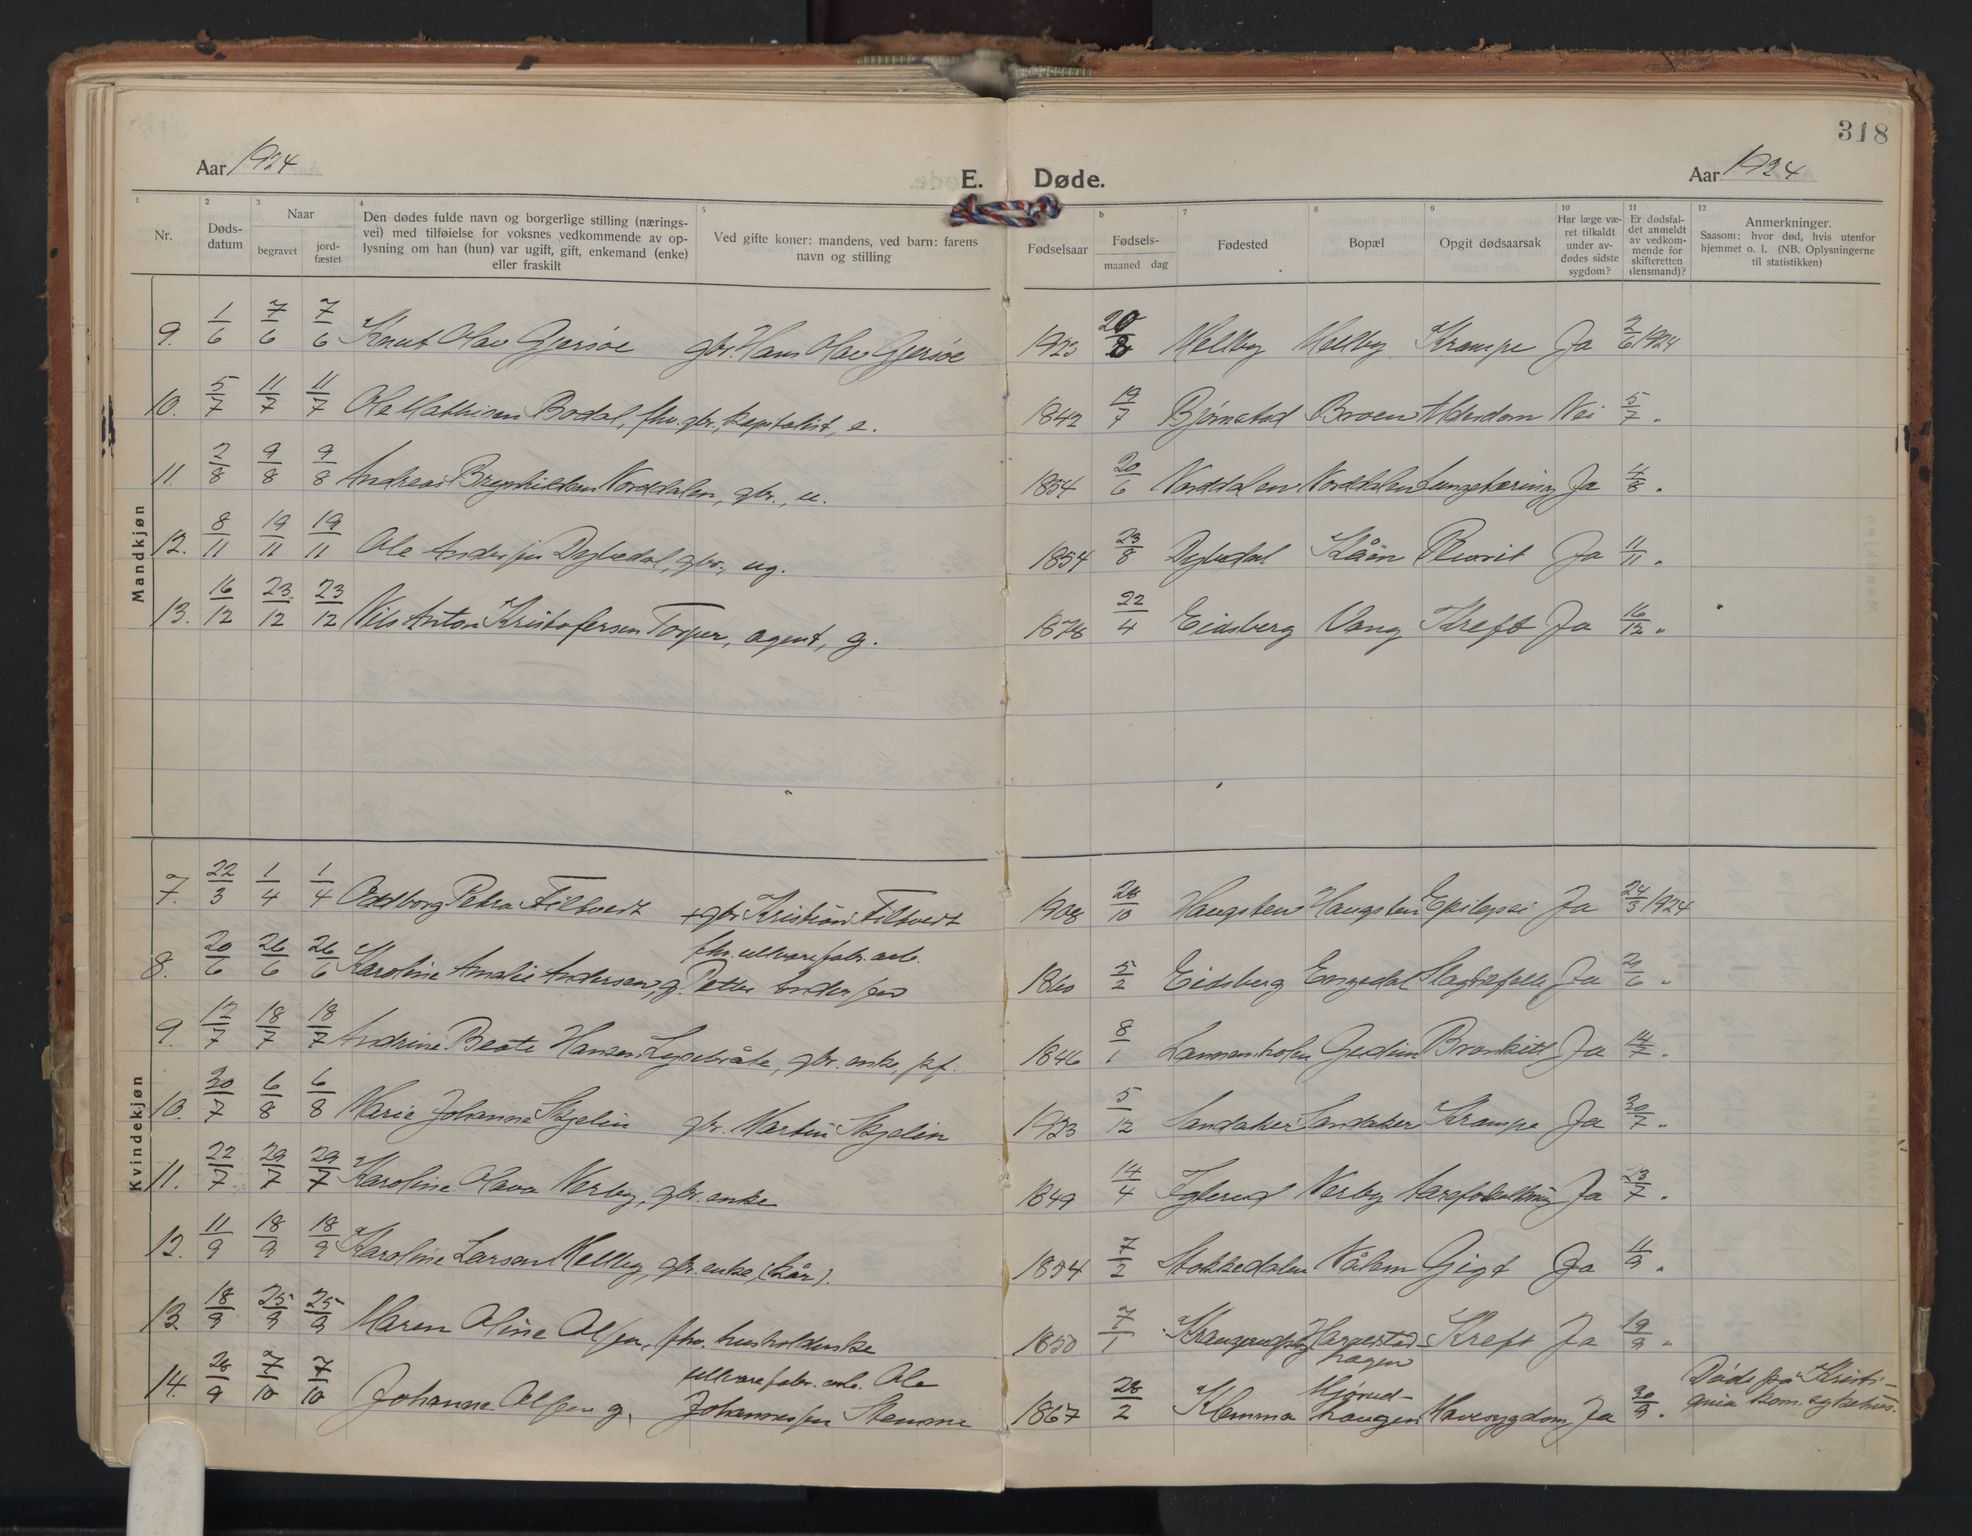 318
Aar 1924 E. Døde. Aar 1924
1 2 3 4 5 b 7 8 9 10 11 12
Nr. Døds-datum Naar begravet jord-fæstet Den dødes fulde navn og borgerlige stilling (nærings-vei) med tilføielse for voksnes vedkommende av op-lysning om han (hun) var ugift, gift, enkemand (enke) eller fraskilt Ved gifte koner: mandens, ved barn: farens navn og stilling Fødselsaar Fødsels-maaned dag Fødested Bopæl Opgit dødsaarsak Har læge væ-ret tilkaldt under av-dødes sidste sygdom? Er dødsfal-det anmeldt av vedkom-mende for skifteretten (lensmand)? Anmerkninger. Saasom: hvor død, hvis utenfor hjemmet o. l. (NB. Oplysningerne til statistikken)
Mandkjøn
9. 1/6 7/6 7/6 Knut Olav Gjersøe gbr. Hans Olav Gjersøe 1923 20/8 Melleby Melleby Krampe Ja 2/6 1924
10. 5/7 11/7 11/7 Ole Mathisen Bodal, fhv. gbr., kapitalist, e. 1842 19/7 Bjørnstad Broen Alderdom Nei 5/7 "
11. 2/8 9/8 9/8 Andreas Brynhildsen Norddalen, gbr., u. 1854 20/6 Norddalen Norddalen Lungetæring Ja 4/8 "
12. 8/11 19/11 19/11 Ole Andersen Dybedal, gbr., ug. 1854 23/8 Dybedal Slåen Pleurit Ja 11/11 "
13. 16/12 23/12 23/12 Nils Anton Kristofersen Torper, agent, g. 1878 22/4 Eidsberg Vang Kreft Ja 16/12 "
Kvindekjøn
7. 22/3 1/4 1/4 Oddborg Petra Filtvedt + gbr. Kristian Filtvedt 1908 28/10 Haugsten Haugsten Epilepsi Ja 24/3 1924
8. 20/6 26/6 26/6 Karoline Amalie Andersen, g. fhv. uldvarefabr. arb. Petter Andersen 1860 5/2 Eidsberg Engedal Slagtilfelle Ja 21/6 "
9. 12/7 18/7 18/7 Andrine Beate Hansen Lysebråte, gbr. enke, 1846 8/1 Bronkitt Ja 14/7 "
10. 30/7 6/8 6/8 Marie Johanne Skjelin gbr. Martin Skjelin 1923 5/12 Sandaker Sandaker Krampe Ja 30/7 "
11. 22/7 29/7 29/7 Karoline Olava Nerby, gbr. enke 1849 14/4 Iglerud Nerby Aareforkalkning Ja 23/7 "
12. 11/9 18/9 18/9 Karoline Larsen Melleby, gbr. enke (kår). 1854 7/2 Stokkedalen Gigt Ja 11/9 "
13. 18/9 25/9 25/9 Maren Oline Olsen, fhv. husholderske 1850 7/1 Harnestad-hagen Kreft Ja 19/9 "
14. 28/9 7/10 7/10 Johanne Olsen g. uldvarefabr. arb. Ole Johannessen Stemme 1867 28/2 Klemma Hjørud-haugen Mavesygdom Ja 30/9 " Døde på Kristi-ania kom. sykehus.